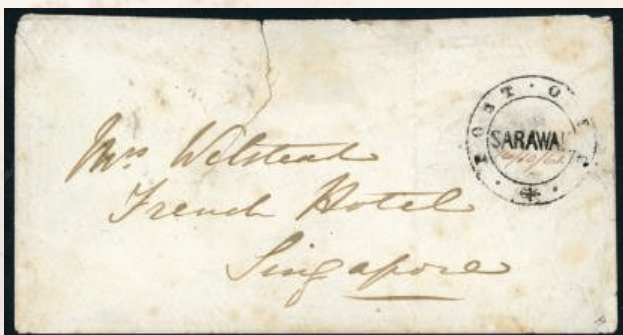 Mrs Welstead
French Hotel
Singapore
POST OFFICE
SARAWAK